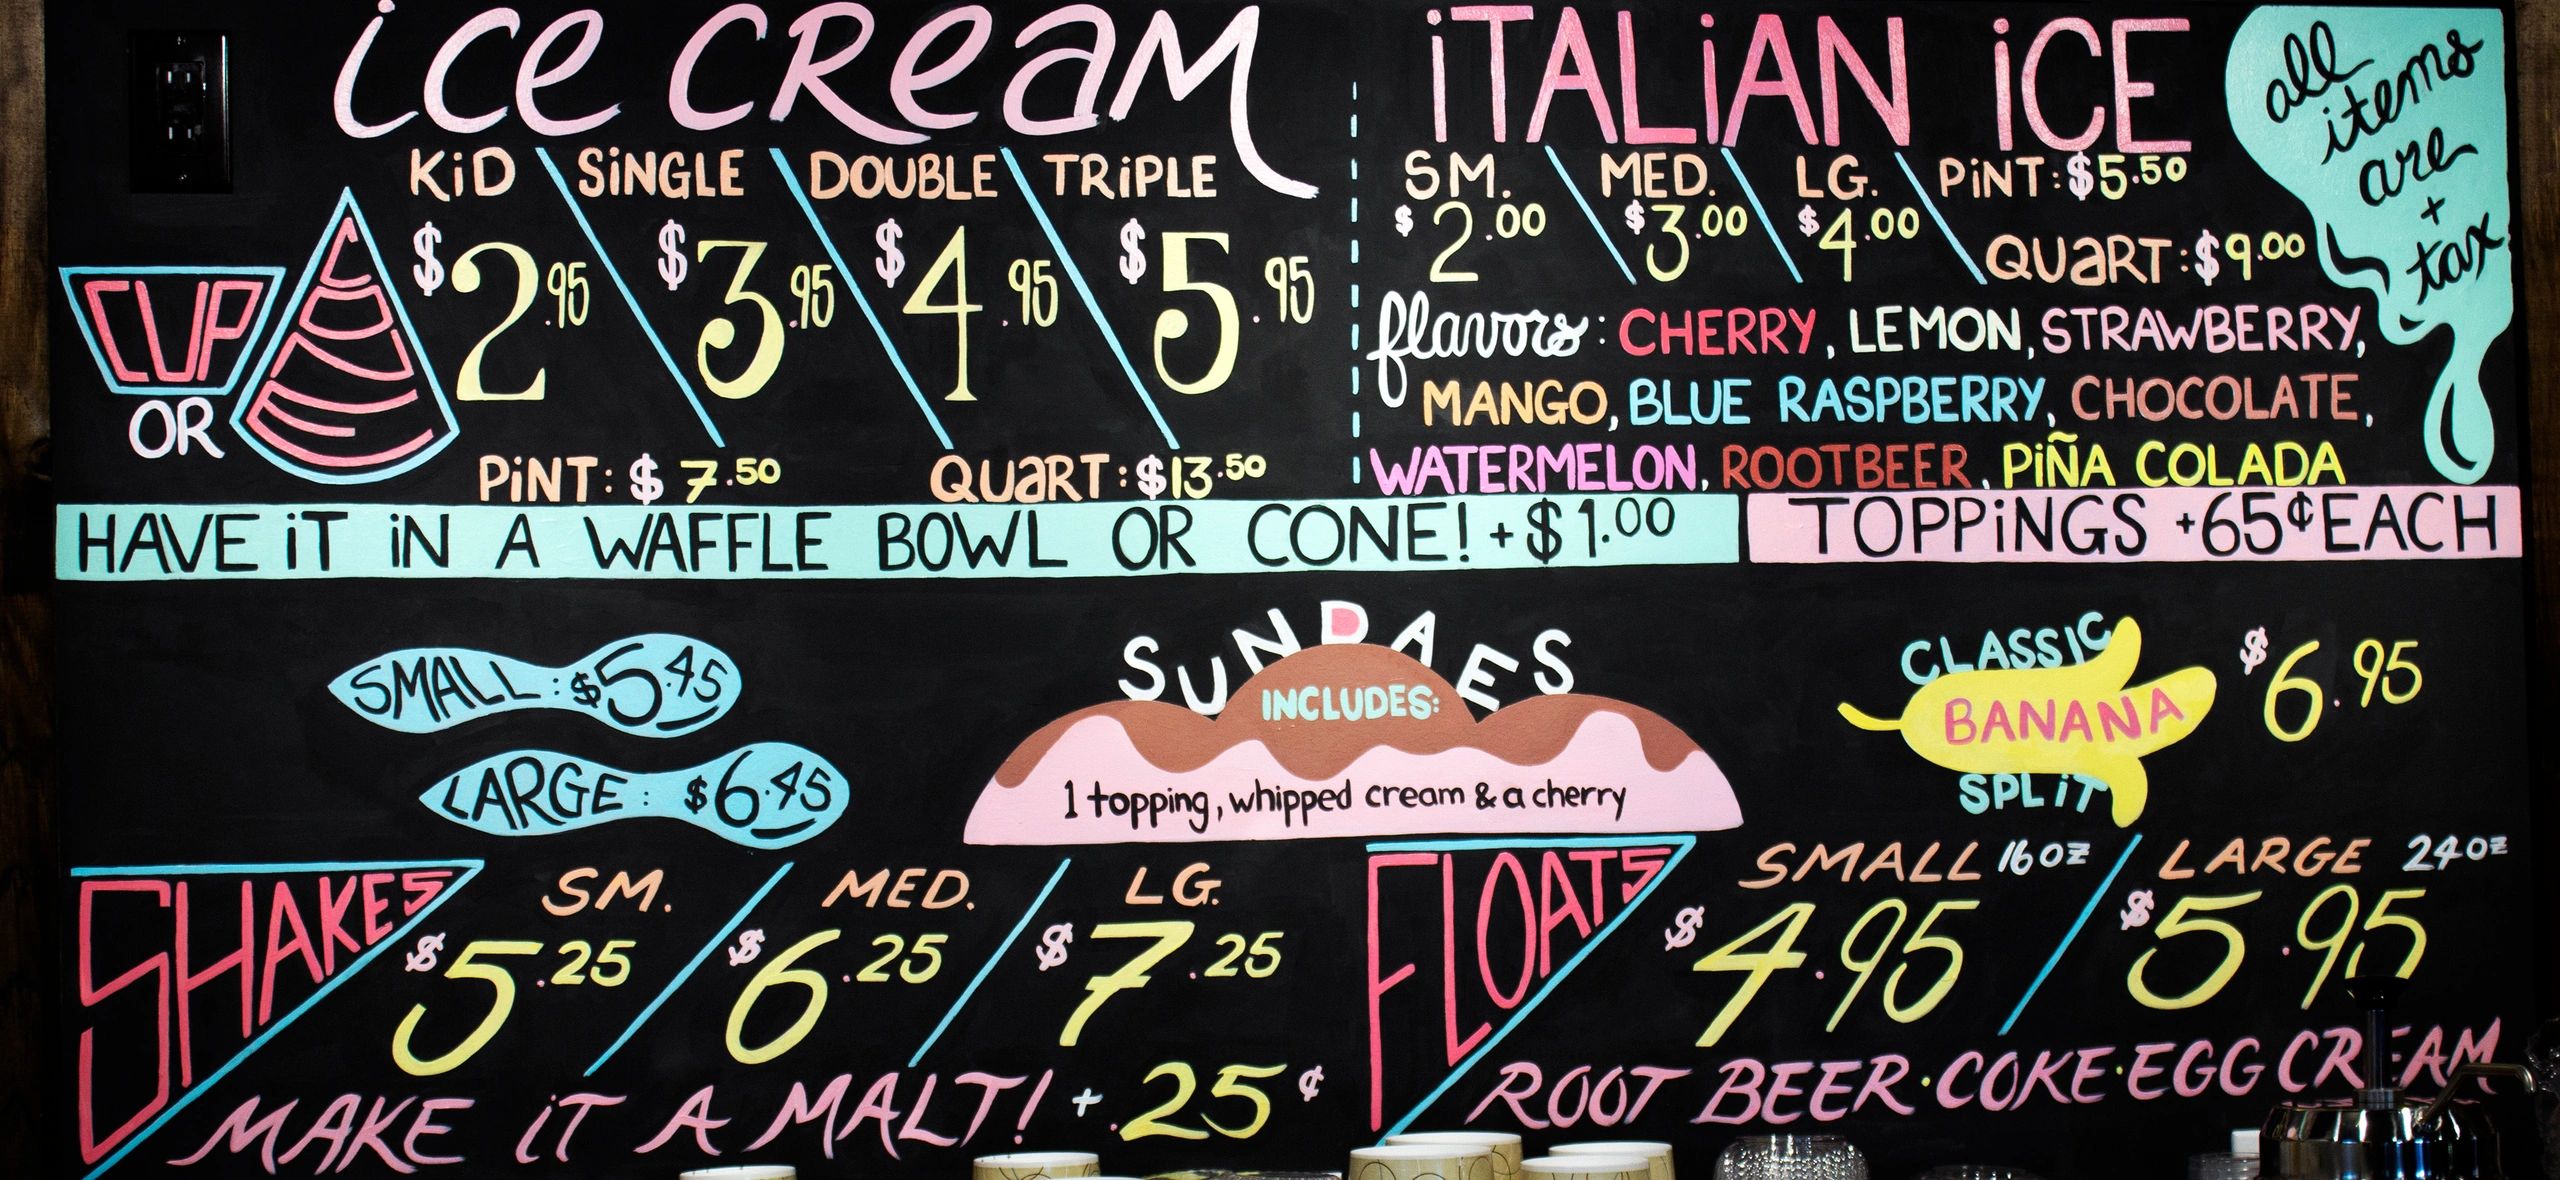 ice cream
KiD SiNGLE DOUBLE TRiPLE
CUP OR
$2.95 $3.95 $4.95 $5.95
PiNT: $7.50 QUaRT: $13.50
iTALiAN iCE
SM. MED. LG. PiNT: $5.50
$2.00 $3.00 $4.00 QUaRT: $9.00
flavors: CHERRY, LEMON, STRAWBERRY,
MANGO, BLUE RASPBERRY, CHOCOLATE,
WATERMELON, ROOTBEER, PiÑA COLADA
all
items
are
+
tax
HAVE iT iN A WAFFLE BOWL OR CONE! +$1.00
TOPPiNGS +65¢ EACH
SMALL: $5.45
LARGE: $6.45
SUNDAES
INCLUDES:
1 topping, whipped cream & a cherry
CLASSIC
BANANA
SPLiT
$6.95
SHAKES
SM. MED. LG.
$5.25 $6.25 $7.25
MAKE iT A MALT! + .25¢
FLOATS
SMALL 16oz LARGE 24oz
$4.95 $5.95
ROOT BEER · COKE · EGG CREAM